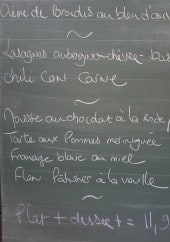 Crème de Brocolis au bleu d'au
~
Lasagnes aubergines-chèvre-bas
chili CON CARNE
~
Mousse au chocolat à la Rose
Tarte aux Pommes meringuée
Fromage blanc au miel
Flan Pâtissier à la vanille
~
Plat + dessert = 11,9